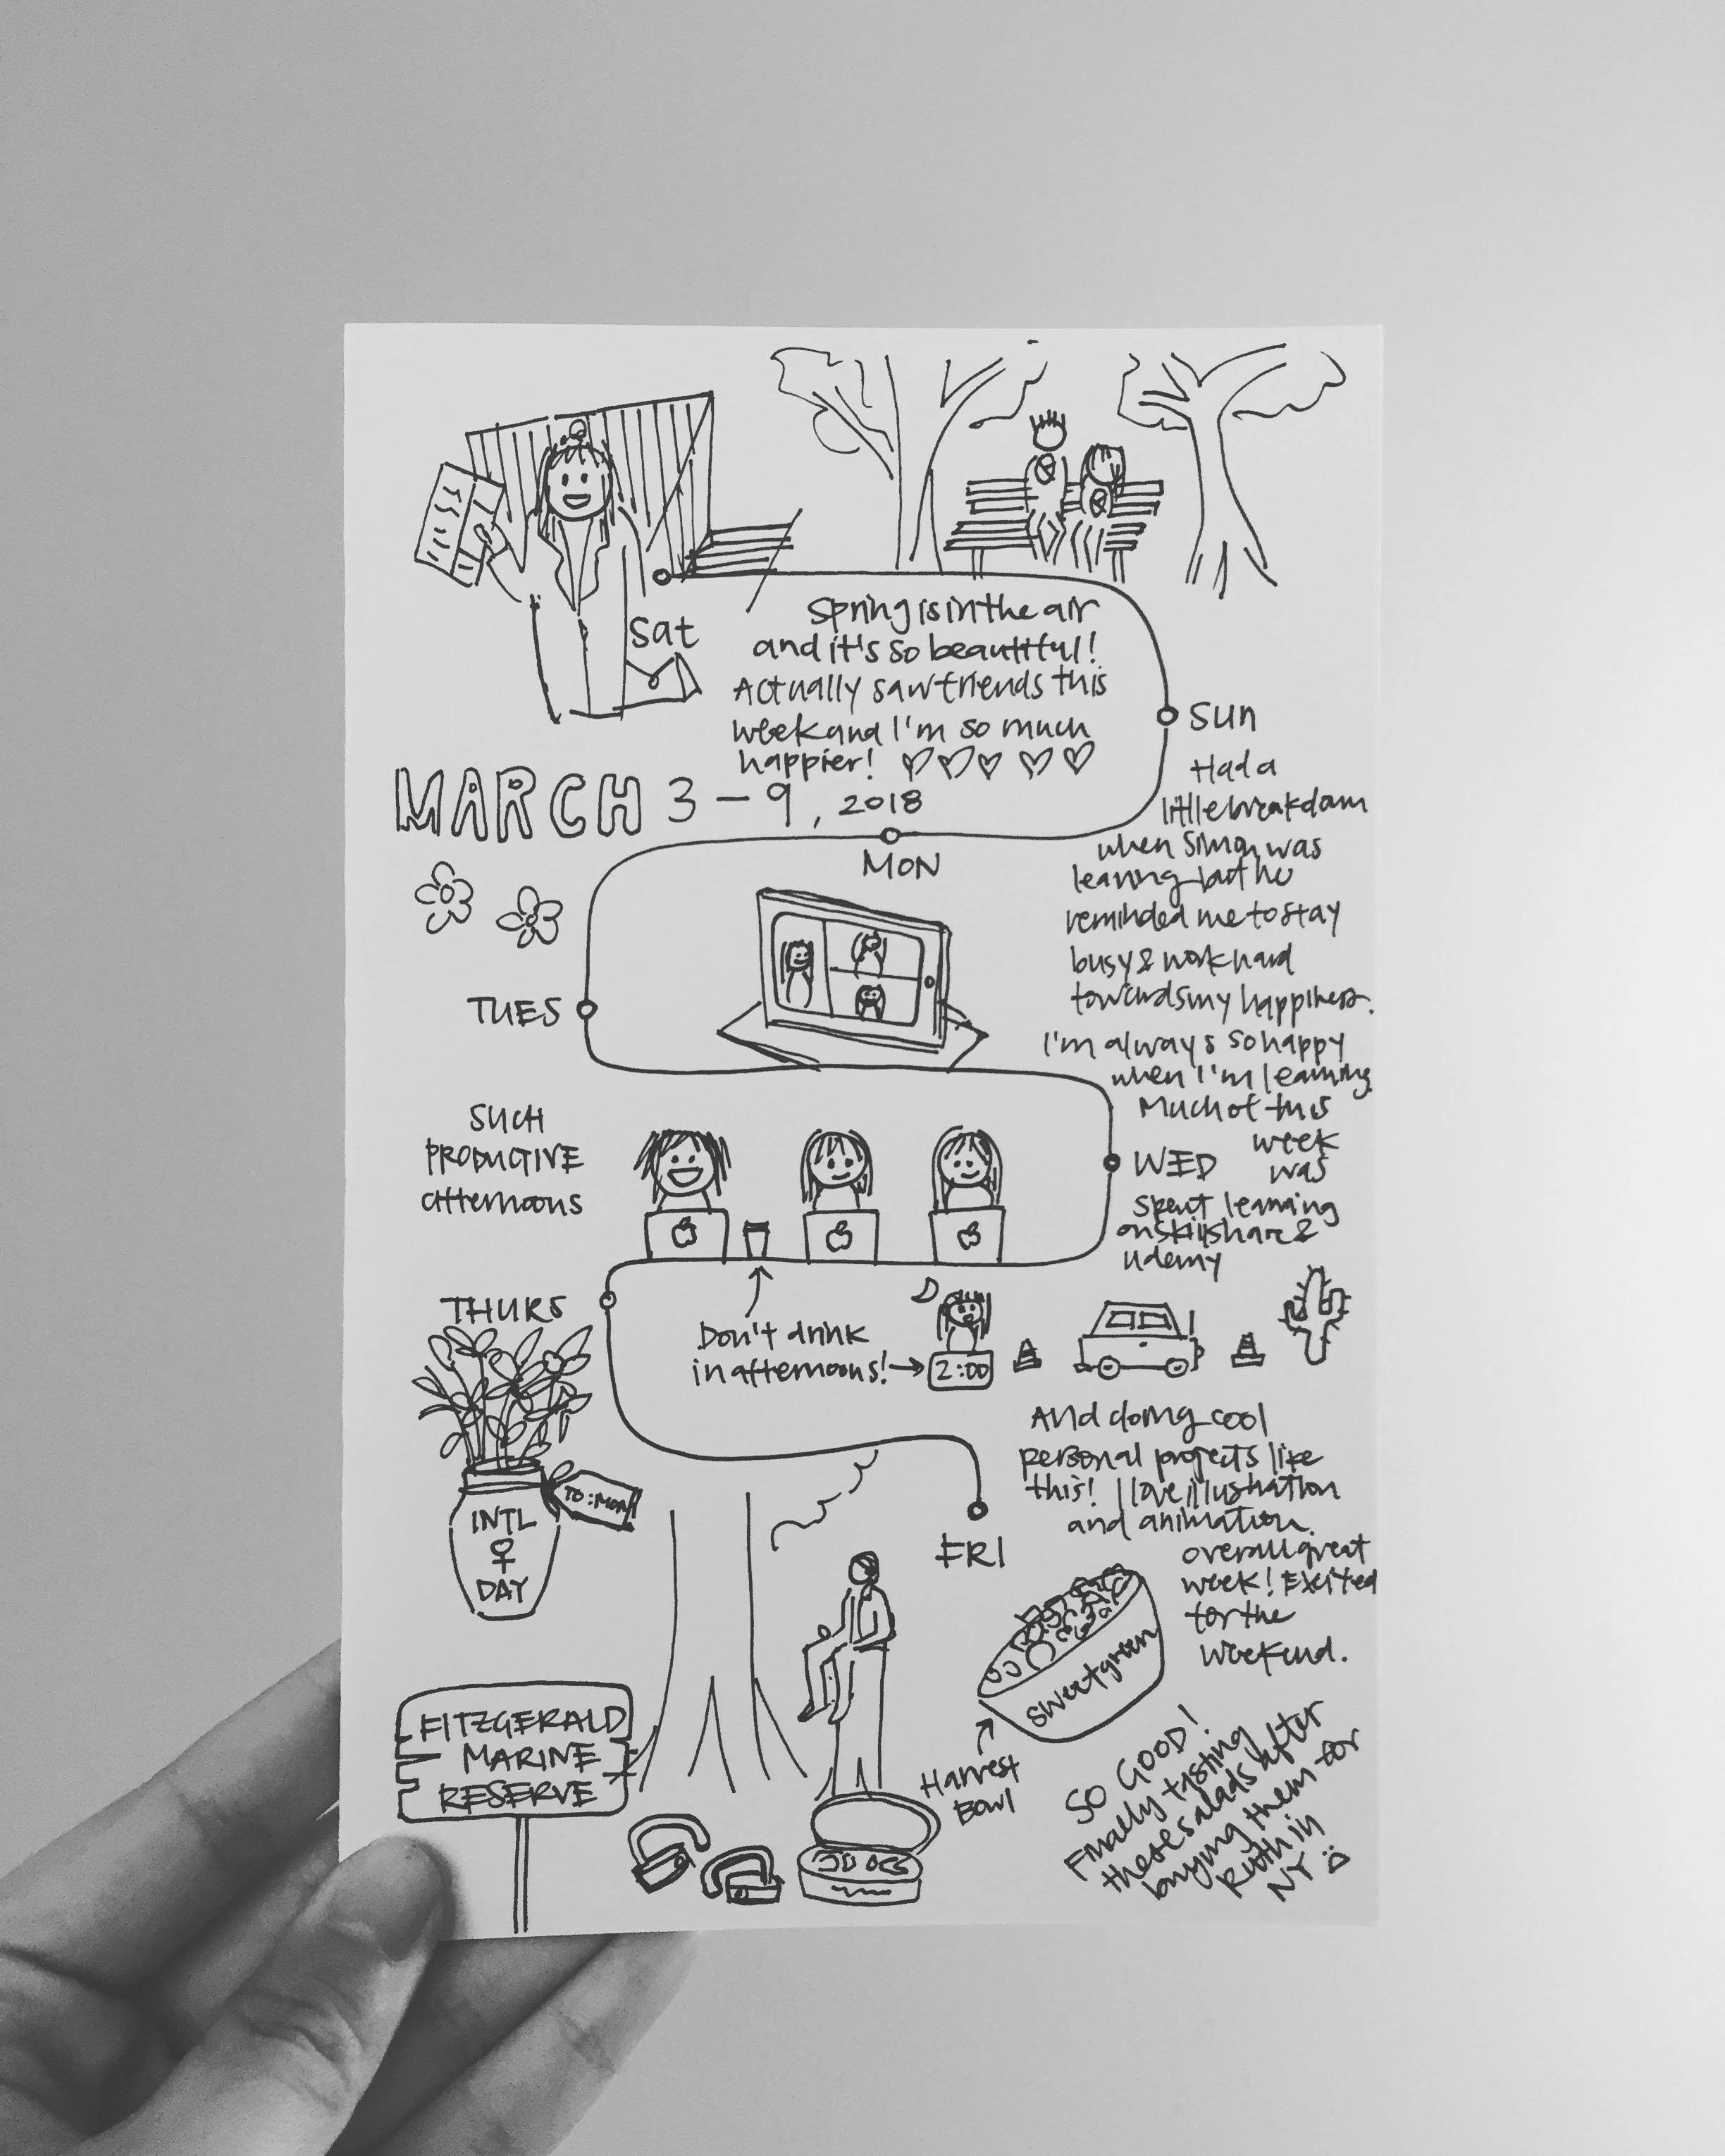 Sat
Spring is in the air
and it's so beautiful!
Actually saw friends this
week and I'm so much
happier!
MARCH 3-9, 2018
SUN
Had a
little breakdown
when Simon was
leaving but he
reminded me to stay
busy & work hard
towards my happiness.
I'm always so happy
when I'm learning.
Much of this
week
was
spent learning
on skillshare &
udemy
MON
TUES
WED
SUCH
PRODUCTIVE
afternoons
THURS
Don't drink
in afternoons!
2:00
And doing cool
personal projects like
this! I love illustration
and animation.
overall great
week! Excited
for the
weekend.
TO: MOM
INTL
♀
DAY
FRI
sweetgreen
Harvest
Bowl
SO GOOD!
Finally tasting
these salads after
buying them for
Ruth in
NY
FITZGERALD
MARINE
RESERVE